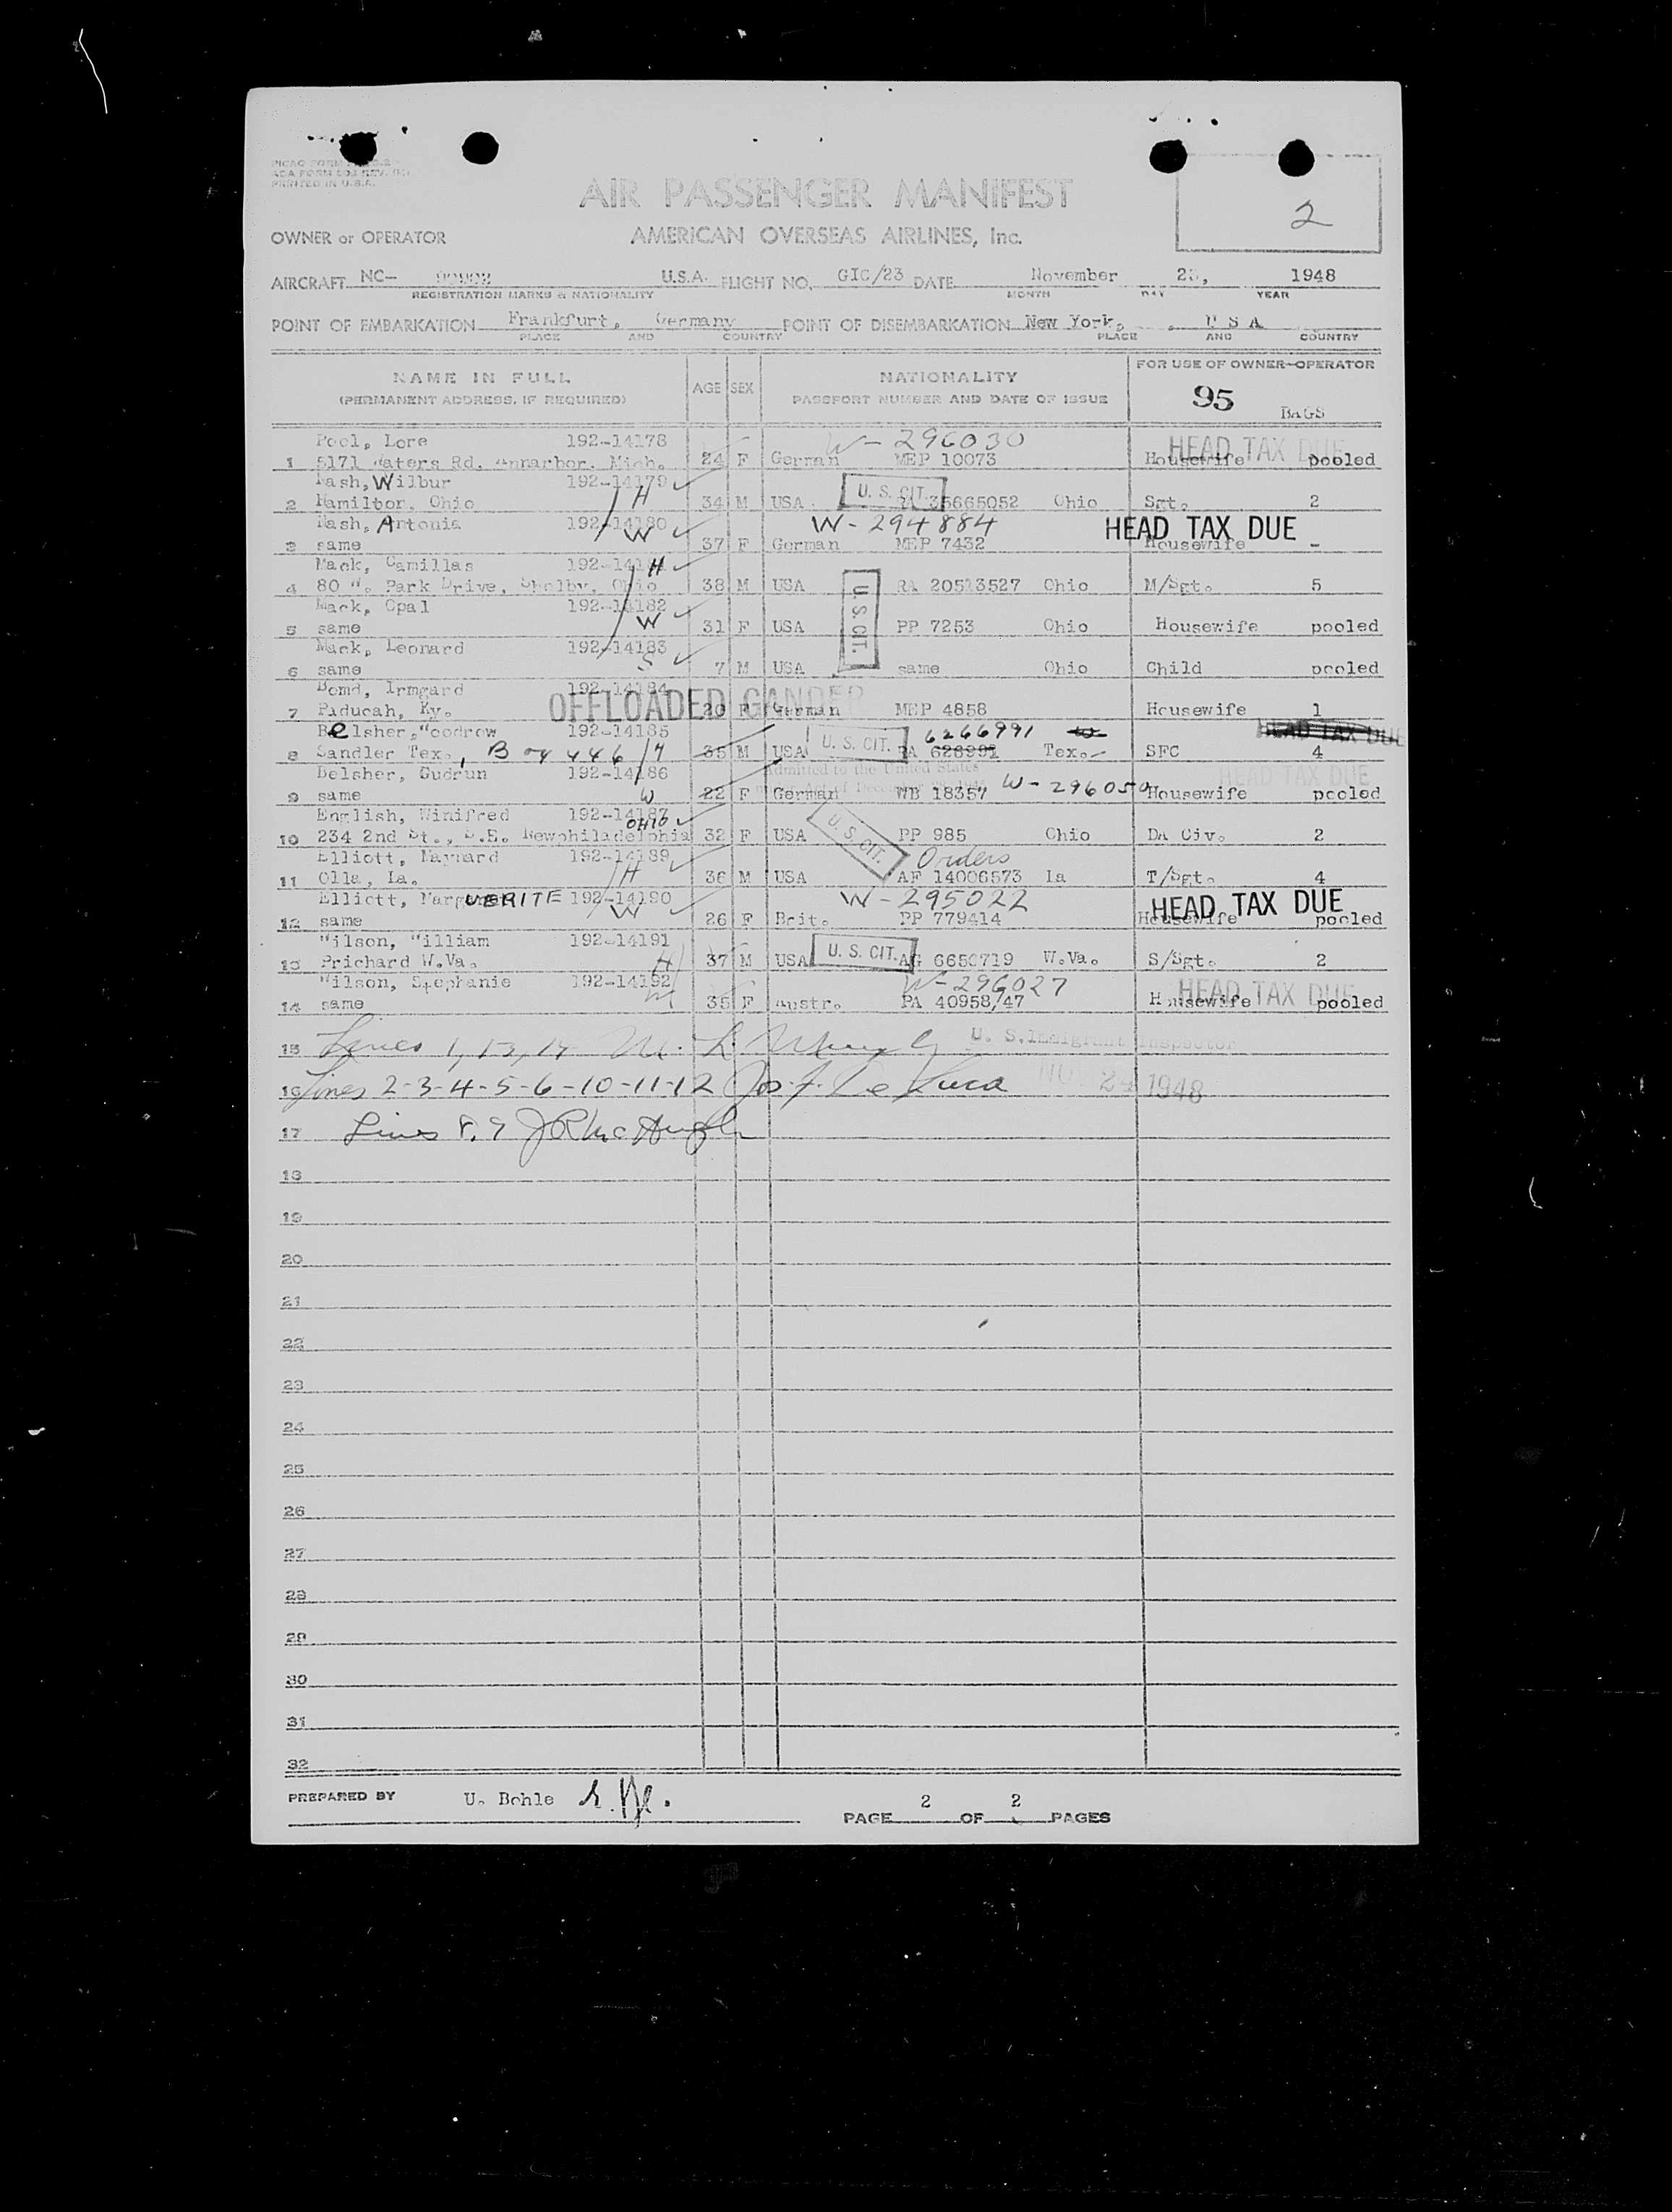 PRINTED IN U.S.A.
AIR PASSENGER MANIFEST
2
OWNER or OPERATOR AMERICAN OVERSEAS AIRLINES, Inc.
AIRCRAFT NC- U.S.A. FLIGHT NO. GIC/23 DATE November 23, 1948
REGISTRATION MARKS & NATIONALITY MONTH DAY YEAR
POINT OF EMBARKATION Frankfurt, Germany POINT OF DISEMBARKATION New York, U S A
PLACE AND COUNTRY PLACE AND COUNTRY
NAME IN FULL AGE SEX NATIONALITY FOR USE OF OWNER-OPERATOR
(PERMANENT ADDRESS, IF REQUIRED) PASSPORT NUMBER AND DATE OF ISSUE 95 BAGS
Pool, Lore 192-14178 W-296030 HEAD TAX DUE
1 5171 Waters Rd. Annarbor. Mich. 24 F German MEP 10073 Housewife pooled
Nash, Wilbur 192-14179 H U. S. CIT.
2 Hamilton, Ohio 34 M USA 35665052 Ohio Sgt. 2
Nash, Antonia 192-14180 W W-294884 HEAD TAX DUE
3 same 37 F German MEP 7432 Housewife -
Mack, Camillas H
4 80 W. Park Drive, Shelby, Ohio 38 M USA RA 20513527 Ohio M/Sgt. 5
Mack, Opal 192-14182 W U. S. CIT.
5 same 31 F USA PP 7253 Ohio Housewife pooled
Mack, Leonard 192-14183 S
6 same 7 M USA same Ohio Child pooled
Irmgard 192-14184 OFFLOADED GANDER
7 Paducah, Ky. 20 F German MEP 4858 Housewife 1
Belsher, Woodrow 192-14185 U. S. CIT. 6266991 HEAD TAX DUE
8 Sandler Tex., Box 446 35 M USA RA 626991 Tex. SFC 4
Belsher, Gudrun 192-14186 Admitted to the United States HEAD TAX DUE
9 same W 22 F German WB 18357 W-296050 Housewife pooled
English, Winifred 192-14187 OHIO
10 234 2nd St., S.E. Newphiladelphia 32 F USA U. S. CIT. PP 985 Ohio DA Civ. 2
Elliott, Maynard 192-14189 H Orders
11 Olla, La. 36 M USA AF 14006573 La T/Sgt. 4
Elliott, MarguERITE 192-14190 W W-295022 HEAD TAX DUE
12 same 26 F Brit. PP 779414 Housewife pooled
Wilson, William 192-14191 U. S. CIT.
13 Prichard W.Va. H 37 M USA AG 6650719 W.Va. S/Sgt. 2
Wilson, Stephanie 192-14192 W W-296027 HEAD TAX DUE
14 same 35 F Austr. PA 40958/47 Housewife pooled
15 Lines 1, 13, 14 U. S. Immigrant Inspector
16 Lines 2-3-4-5-6-10-11-12 Jos. F. De Luca NOV 24 1948
17 Lines 8, 9 J R McHugh
18
19
20
21
22
23
24
25
26
27
28
29
30
31
32
PREPARED BY U. Bohle PAGE 2 OF 2 PAGES